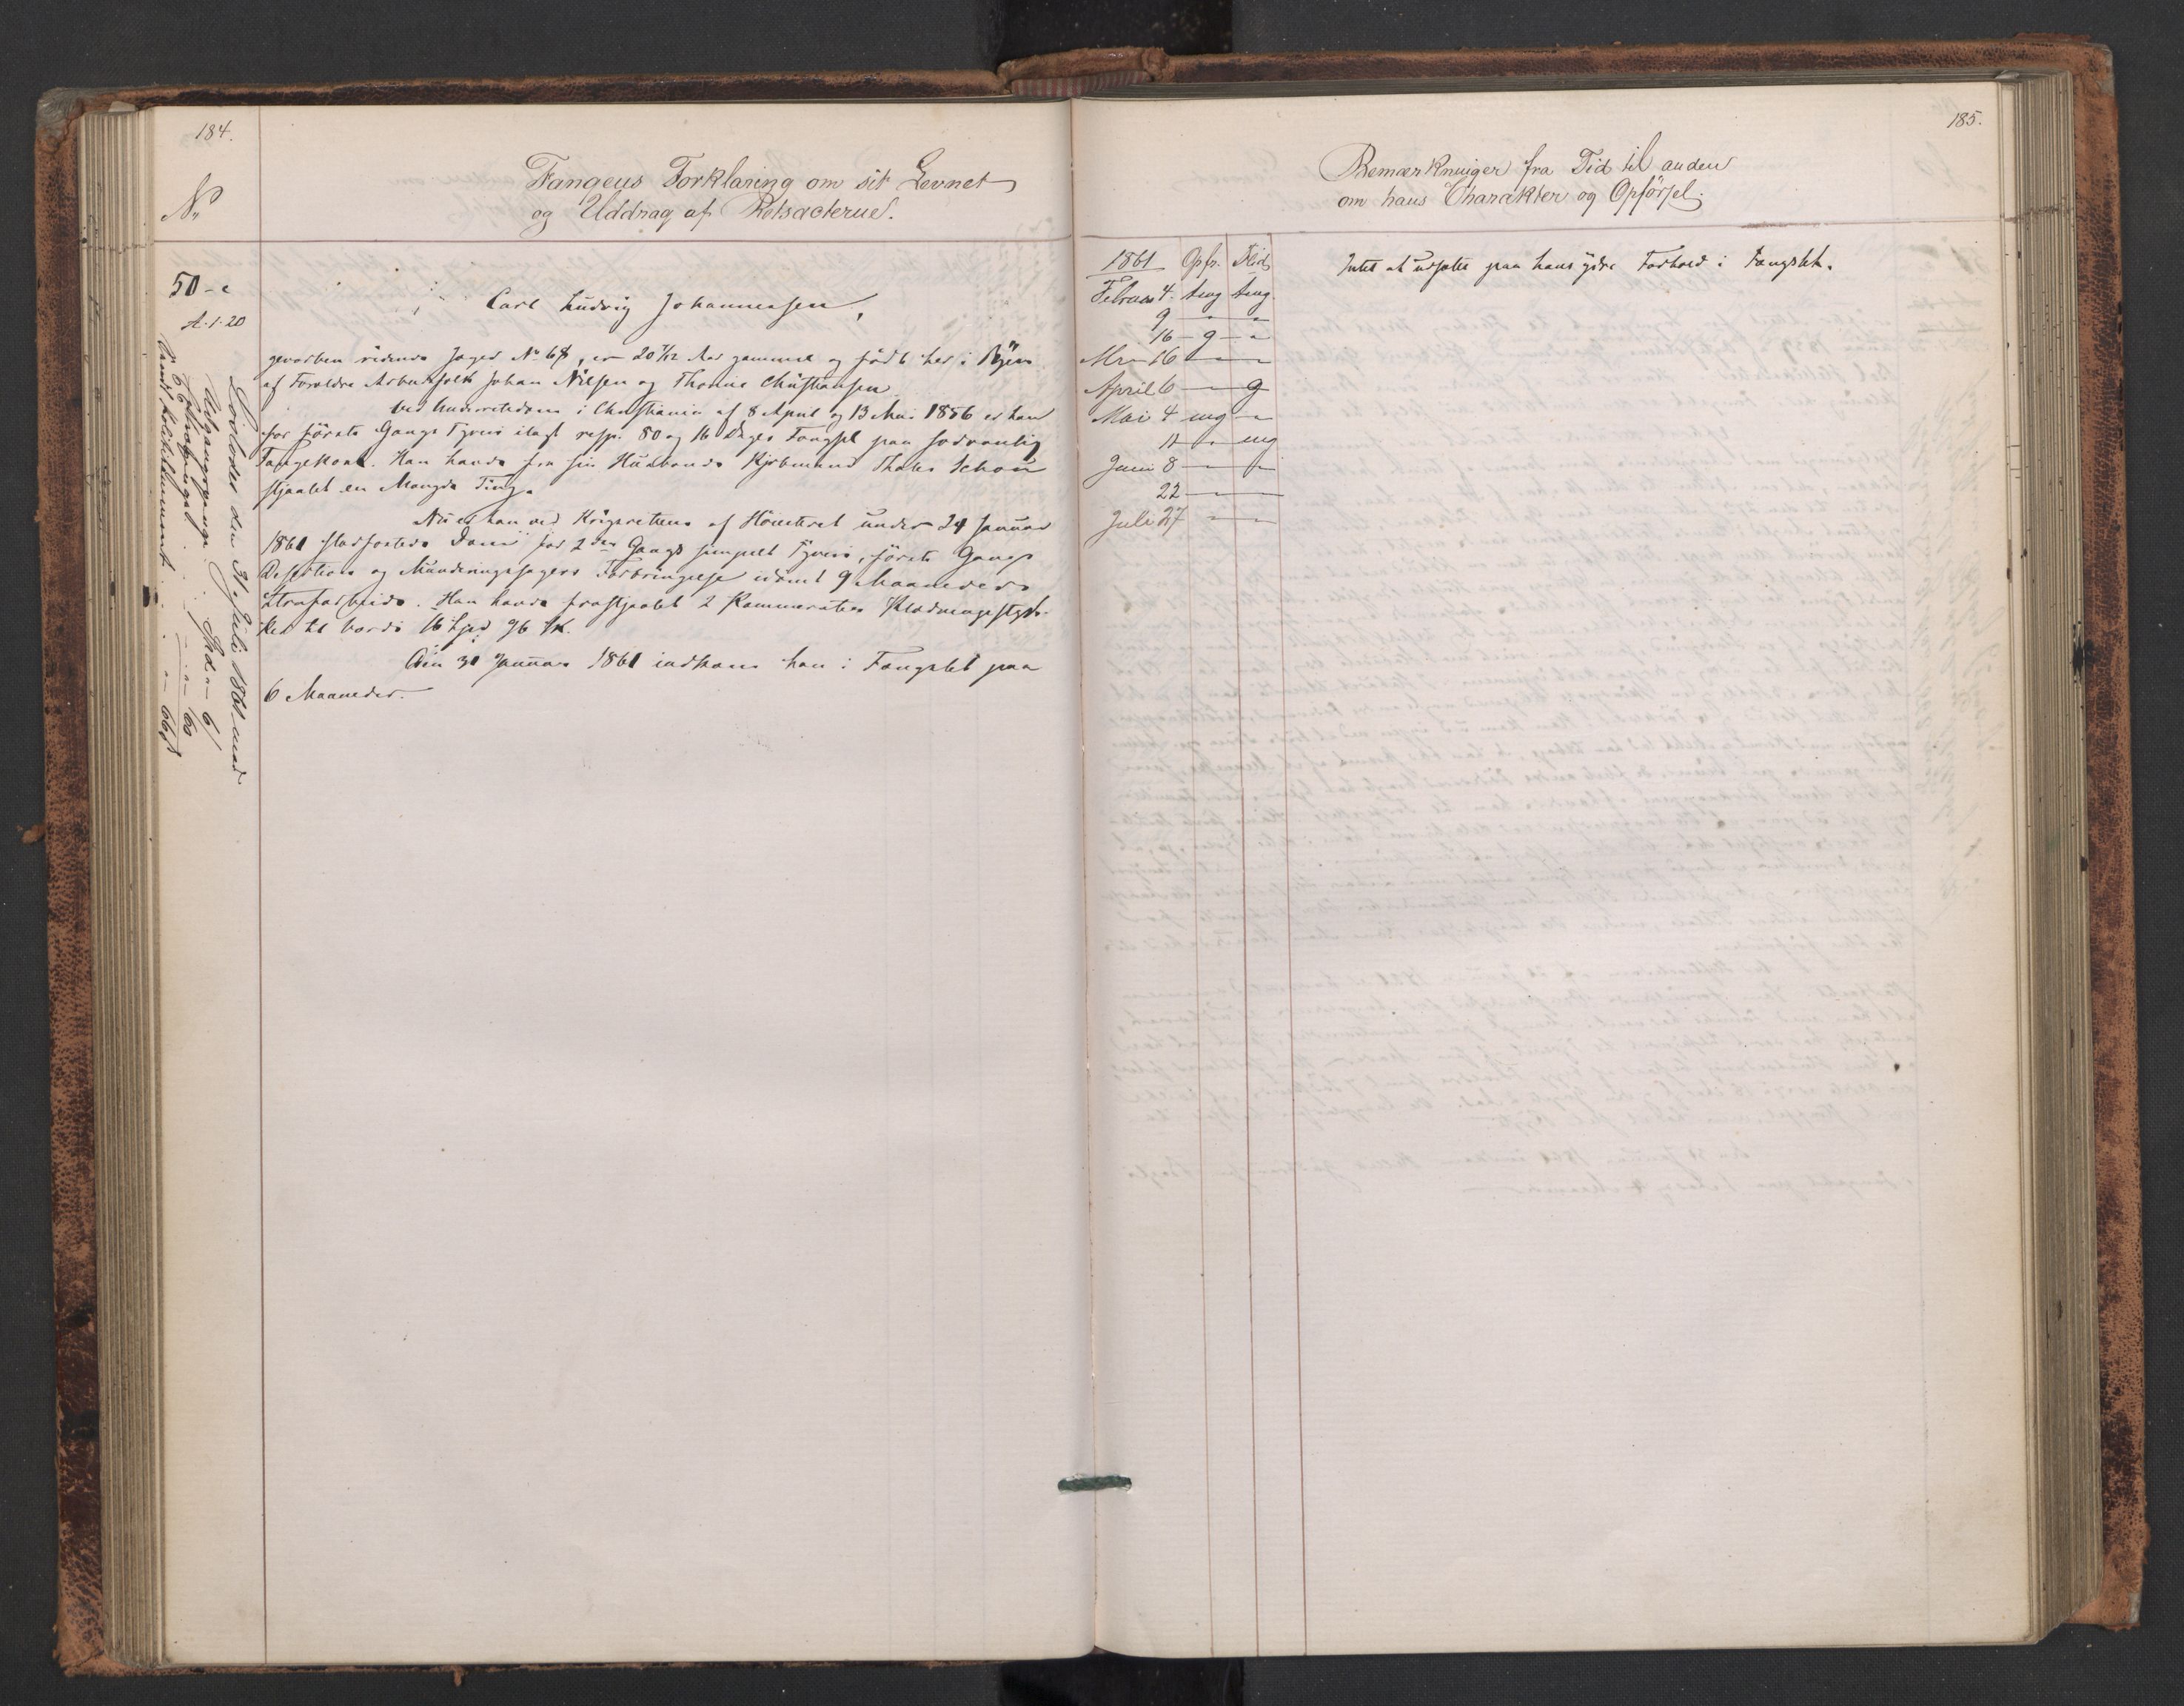 184.
No
Fangens Forklaring om sit Levnet
og Uddrag af Retsacterne.
50-c
A.1.20
Carl Ludvig Johannesen,
gevorben ridende Jæger No 68, er 20 7/12 Aar gammel og födt her i Byen
af Forældre Arbeidsfolk Johan Nilsen og Thorine Christiansen
Ved Underretsdom i Christiania af 8 April og 13 Mai 1856 er han
for förste Gangs Tyveri ilagt resp. 80 og 16 Dages Fængsel paa sædvanlig
Fangekost. Han havde fra sin Huusbonde Kjöbmand Schou
stjaalet en Mængde Ting.
Nu er han ved Krigsrettens af Höiesteret under 24 Januar
1861 stadfæstede Dom for 2den Gangs simpelt Tyveri, förste Gangs
Desertion og Munderingssagers Forbringelse idömt 9 Maaneders
Strafarbeide. Han havde frastjaalet 2 Kammerater Klædningsstyk-
ker til Værdi 16 96 sk.
Den 31 Januar 1861 indkom han i Fængslet paa
6 Maaneder.
Löslades den 31 Juli 1861 med
Udgangspenge
til Politikammeret
185.
Bemærkninger fra Tid til anden
om hans Charakter og Opförsel.
1861 Opfr. Flid
Februar 4. tmg tmg.
9 - -
16 - g - -
Mr. 16 - -
April 6 - g
Mai 4 mg -
11 - mg
Juni 8 - -
22 - -
Juli 27 - -
Intet at udsætte paa hans ydre Forhold i Fængslet.